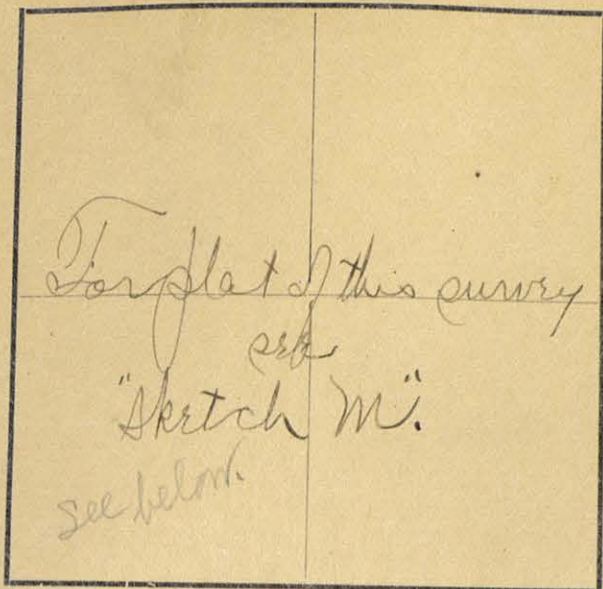 For plat of this survey
see
"Sketch M".
See below.